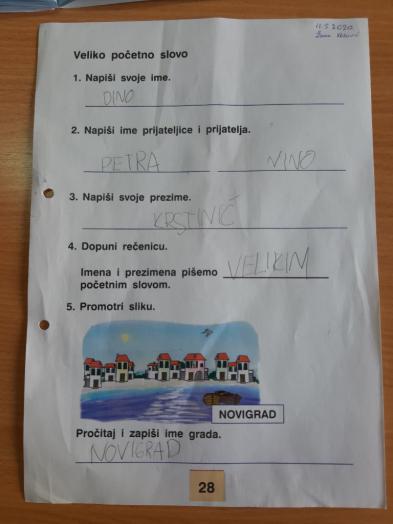 11.5.2020.
Veliko početno slovo
1. Napiši svoje ime.
DINO
2. Napiši ime prijateljice i prijatelja.
PETRA NINO
3. Napiši svoje prezime.
KRSTINIĆ
4. Dopuni rečenicu.
Imena i prezimena pišemo VELIKIM
početnim slovom.
5. Promotri sliku.
NOVIGRAD
Pročitaj i zapiši ime grada.
NOVIGRAD
28